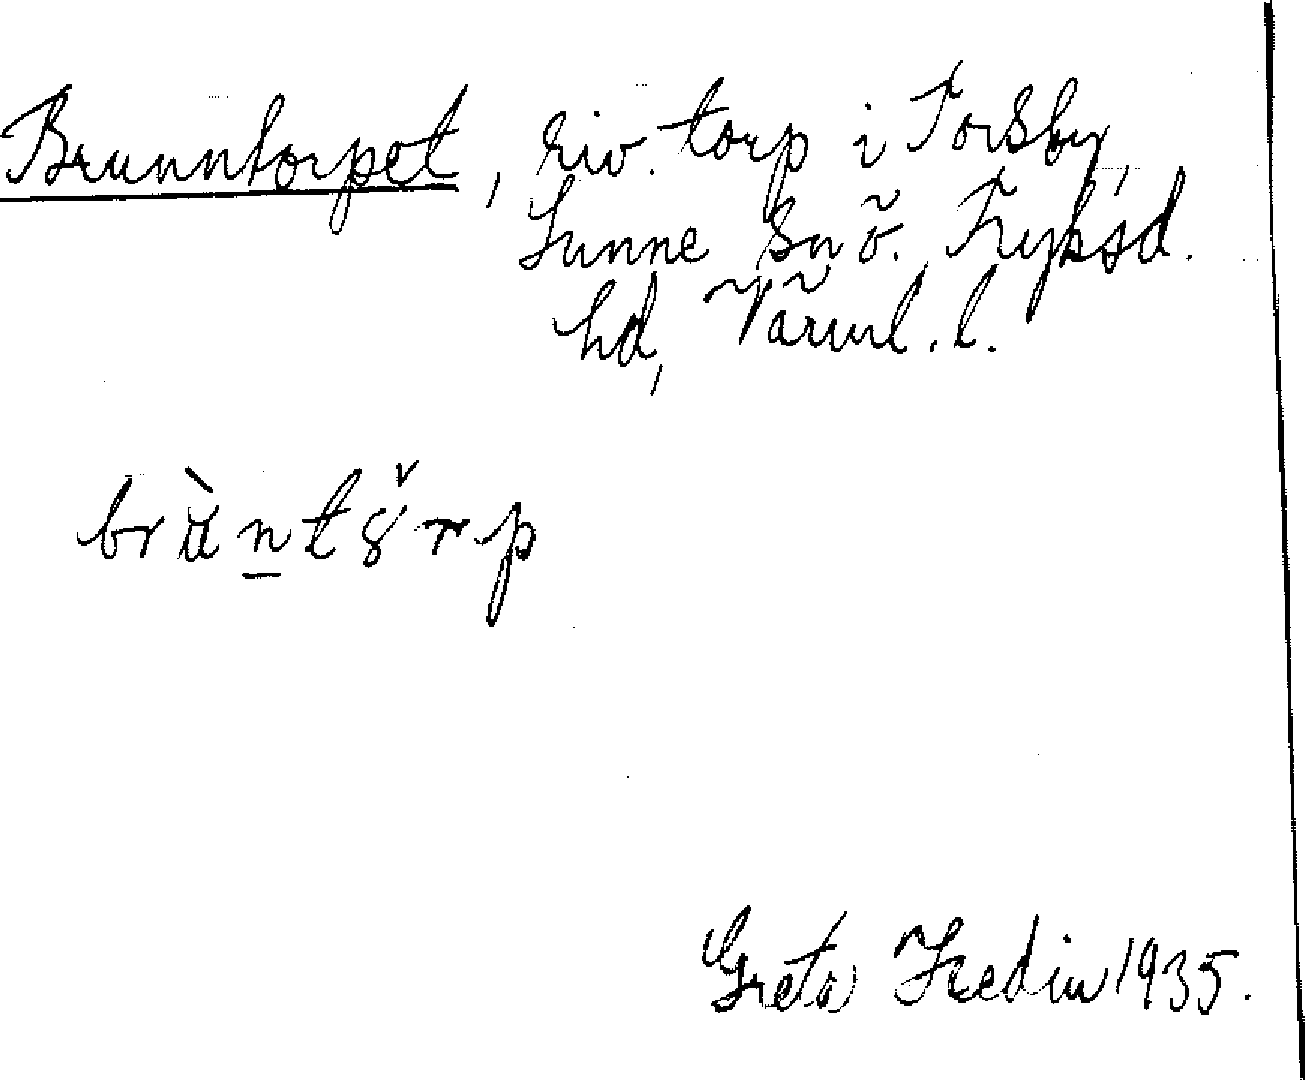 Brunntorpet, riv. torp i Torsby,
Sunne sn ö. Fryksd.
hd, Värml. l.
brùntşrp
Greta Hedin 1935.